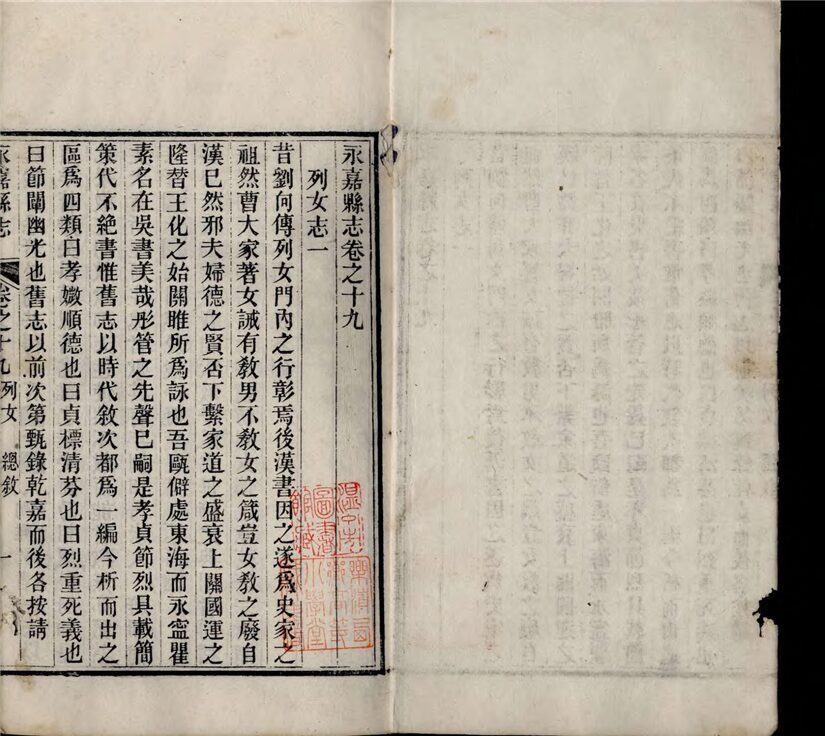 永嘉縣志卷之十九
列女志一
昔劉向傳列女門內之行彰焉後漢書因之遂爲史家之
祖然曹大家著女誡有敎男不敎女之箴豈女敎之廢自
漢已然邪夫婦德之賢否下繫家道之盛衰上關國運之
隆替王化之始關雎所爲詠也吾甌僻處東海而永寍瞿
素名在吳書美哉彤管之先聲已嗣是孝貞節烈具載簡
策代不絶書惟舊志以時代敘次都爲一編今析而出之
區爲四類曰孝媺順德也曰貞標清芬也曰烈重死義也
曰節闡幽光也舊志以前次第甄錄乾嘉而後各按請
永嘉縣志
卷之十九列女
總敘
一